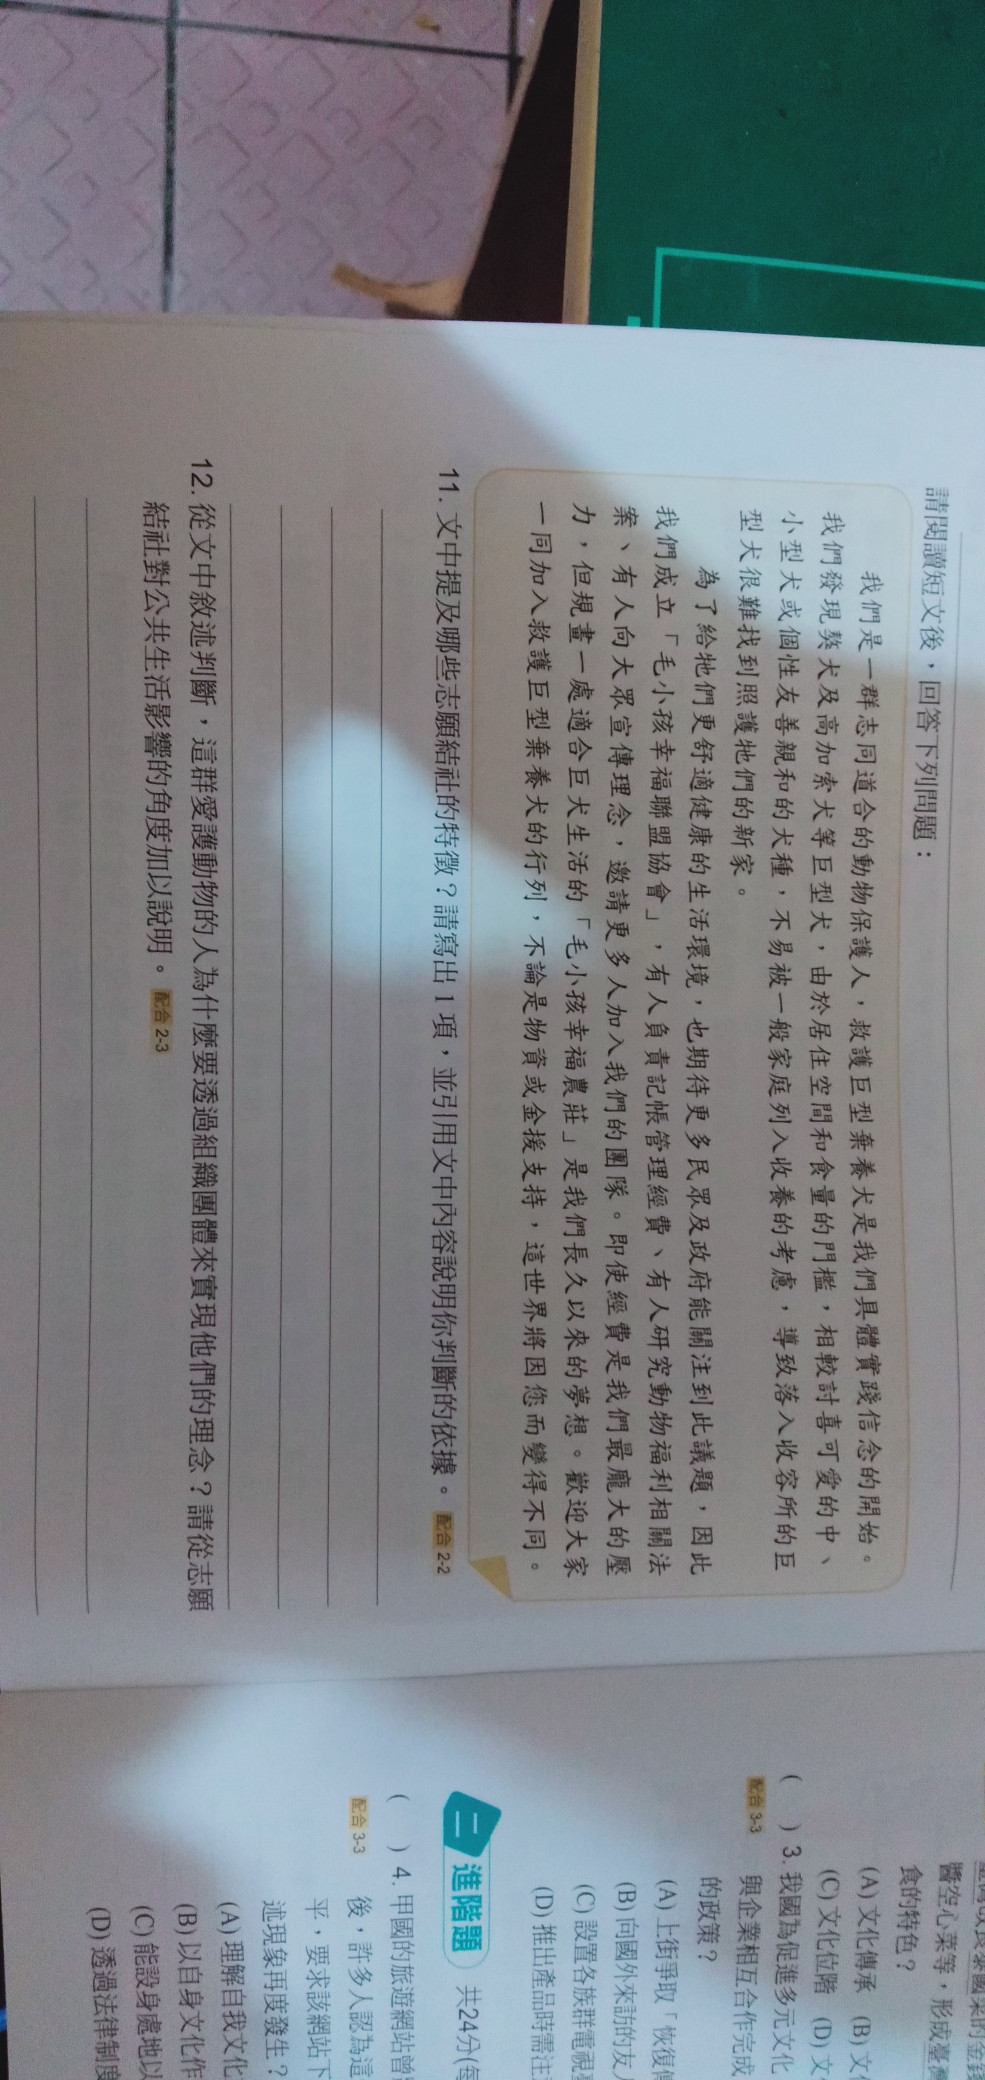 請閱讀短文後，回答下列問題：
我們是一群志同道合的動物保護人，救護巨型棄養犬是我們具體實踐信念的開始。
我們發現獒犬及高加索犬等巨型犬，由於居住空間和食量的門檻，相較討喜可愛的中、
小型犬或個性友善親和的犬種，不易被一般家庭列入收養的考慮，導致落入收容所的巨
型犬很難找到照護牠們的新家。
為了給牠們更舒適健康的生活環境，也期待更多民眾及政府能關注到此議題，因此
我們成立「毛小孩幸福聯盟協會」，有人負責記帳管理經費、有人研究動物福利相關法
案、有人向大眾宣傳理念，邀請更多人加入我們的團隊。即使經費是我們最龐大的壓
力，但規畫一處適合巨犬生活的「毛小孩幸福農莊」是我們長久以來的夢想。歡迎大家
一同加入救護巨型棄養犬的行列，不論是物資或金援支持，這世界將因您而變得不同。
11. 文中提及哪些志願結社的特徵？請寫出1項，並引用文中內容說明你判斷的依據。 配合 2-2
12. 從文中敘述判斷，這群愛護動物的人為什麼要透過組織團體來實現他們的理念？請從志願
結社對公共生活影響的角度加以說明。 配合 2-3
醬空心菜等，形成臺灣
食的特色？
(A) 文化傳承 (B) 文
(C) 文化位階 (D) 文
( ) 3. 我國為促進多元文化
配合 3-3 與企業相互合作完成
的政策？
(A) 上街爭取「恢復傳
(B) 向國外來訪的友
(C) 設置各族群電視
(D) 推出產品時需注
二 進階題 共24分(每
( ) 4. 甲國的旅遊網站曾
配合 3-3 後，許多人認為這
平，要求該網站下
述現象再度發生？
(A) 理解自我文化
(B) 以自身文化作
(C) 能設身處地以
(D) 透過法律制度